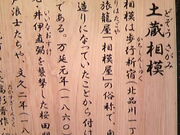 どぞう さがみ
土蔵相模
相模は歩行新宿(北品川一
旅籠屋「相模屋」の俗称で、
造りになっていたことから付
である。万延元年(一八六〇
井伊直弼を襲撃した桜田
浪士たちや、文久二年(一